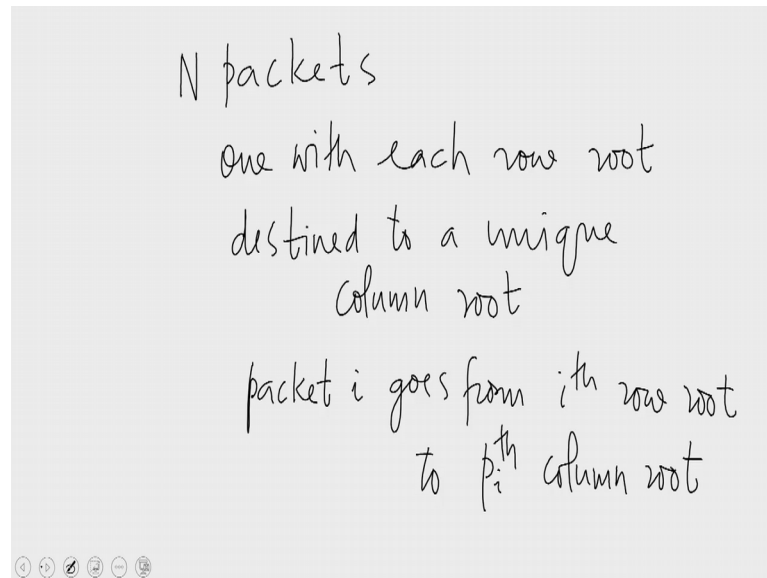 N packets
one with each row root
destined to a unique
column root
packet i goes from i^th row root
to p_i^th column root